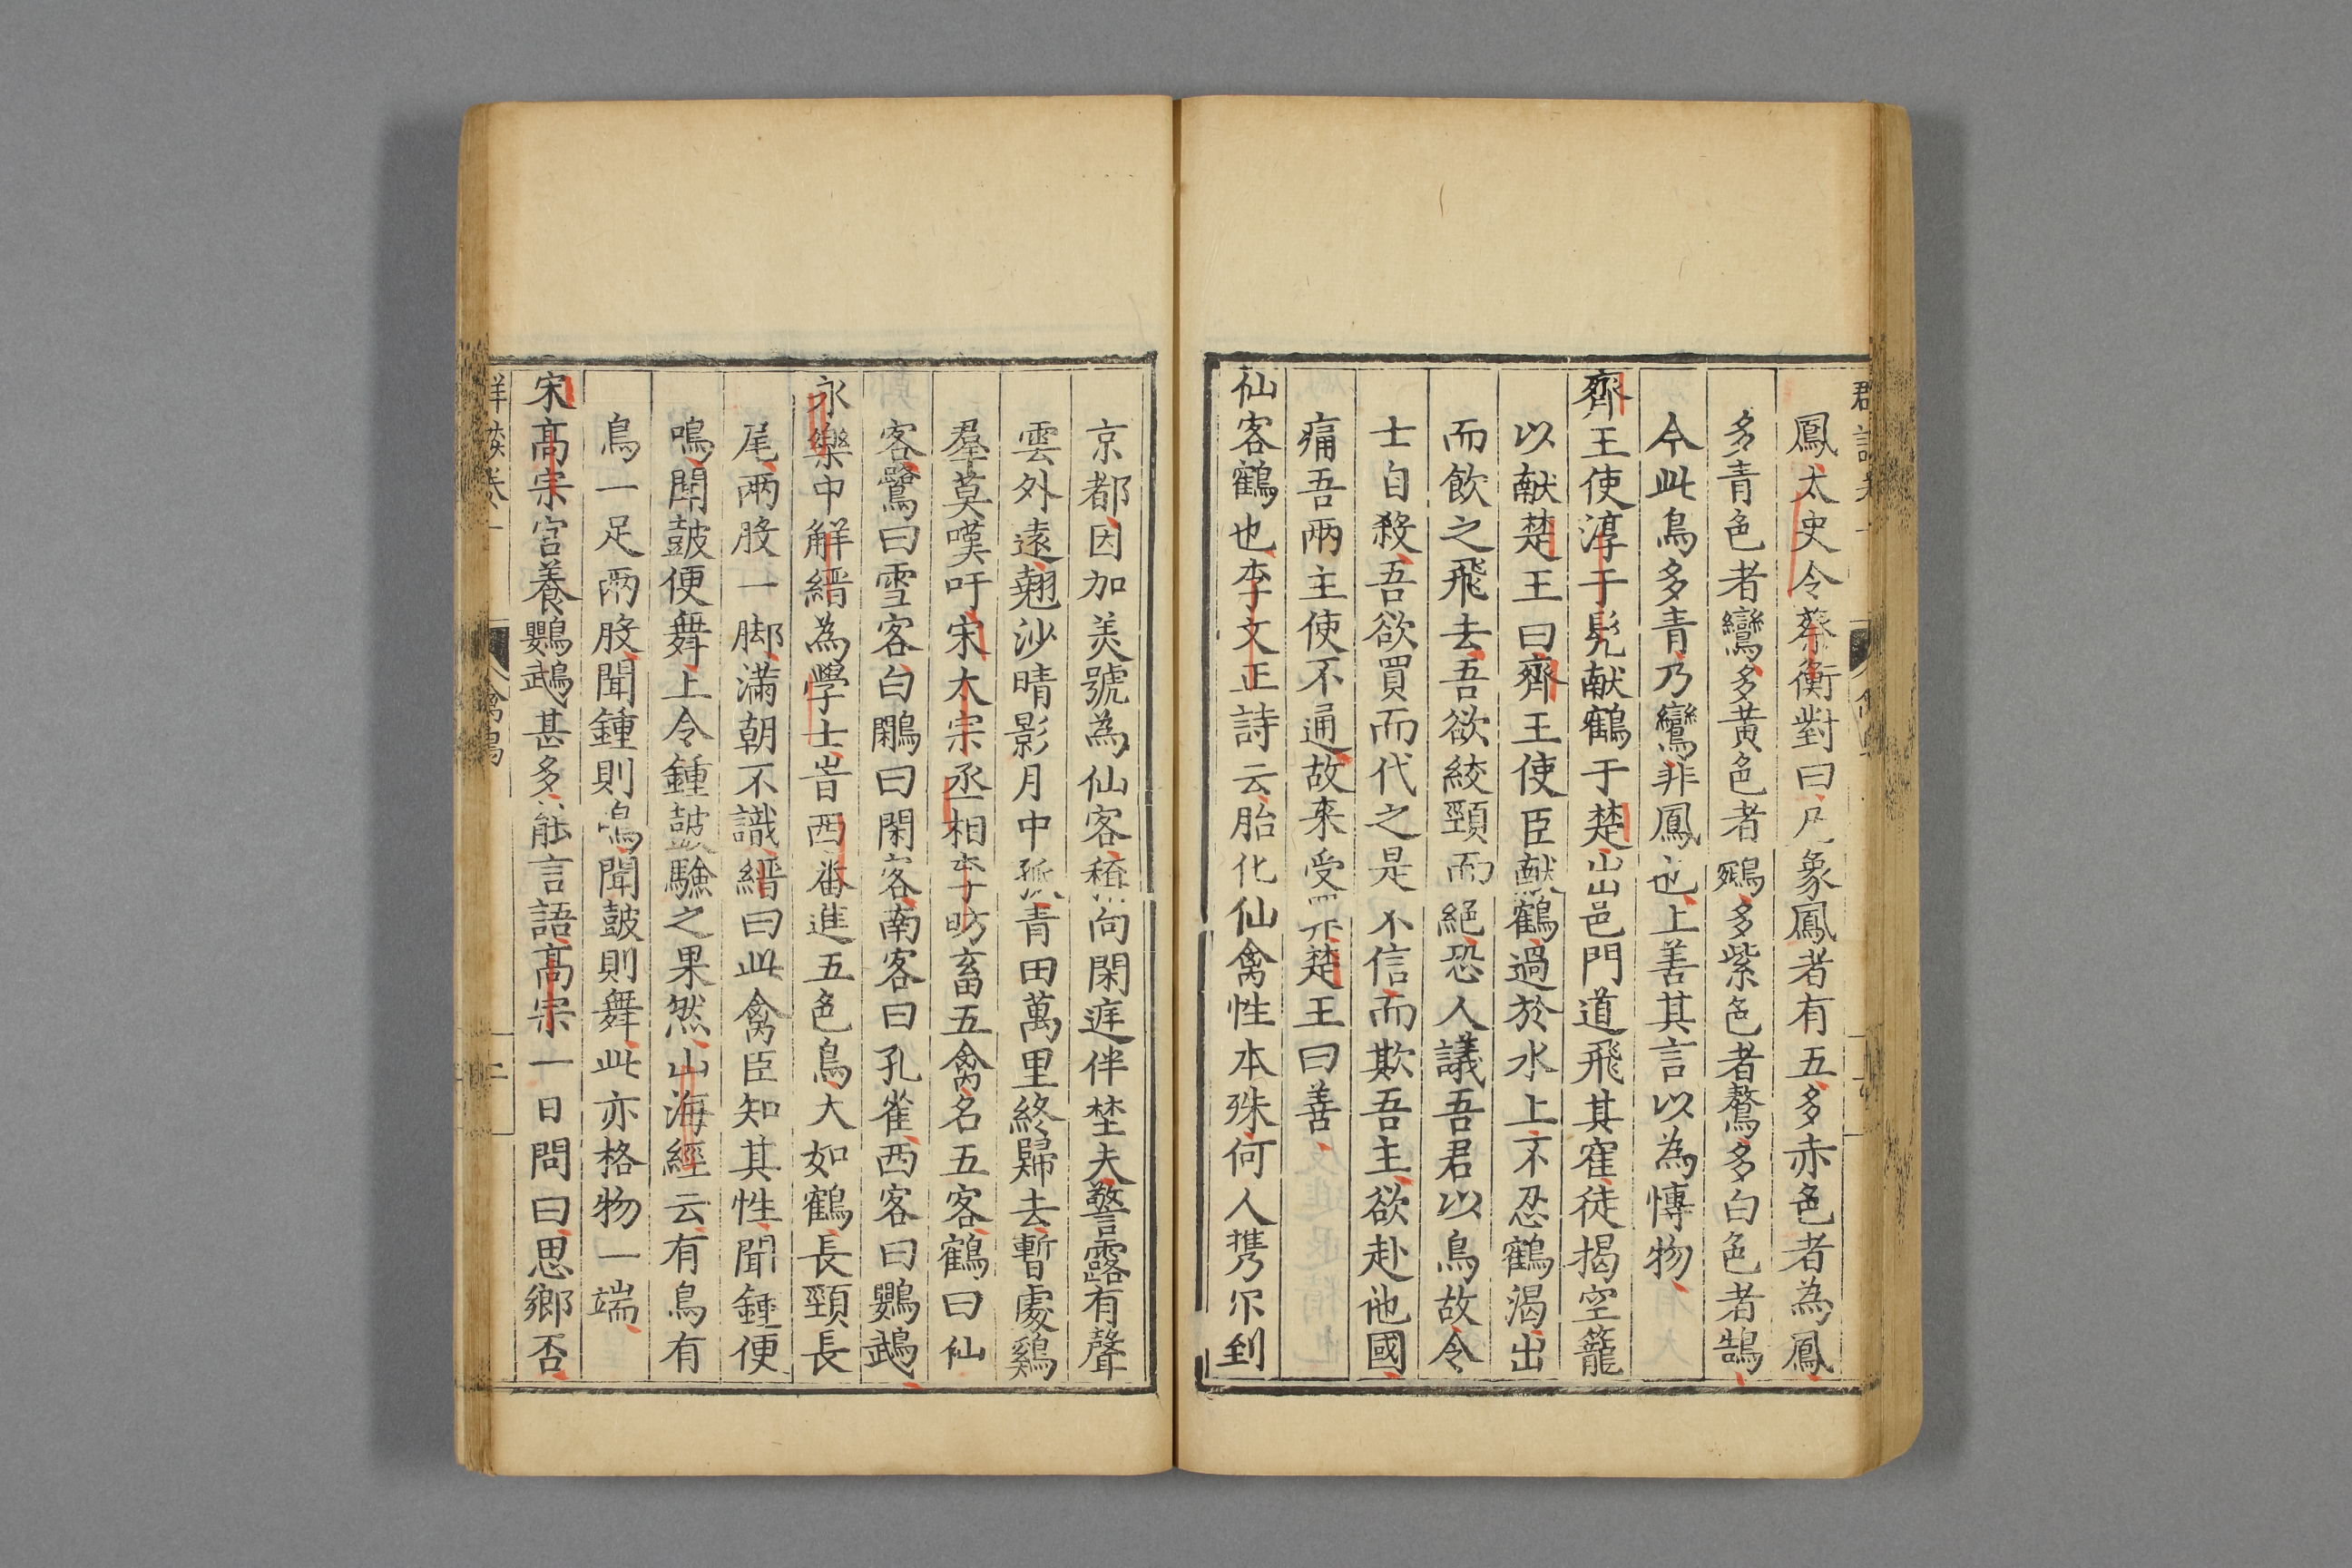 鳳太史令蔡衡對曰凡象鳳者有五多赤色者為鳳
多青色者鸞多黃色者鵷多紫色者鷟多白色者鵠
今此鳥多青乃鸞非鳳也上善其言以為愽物
齊王使淳于髡献鶴于楚出邑門道飛其寉徒揭空籠
以献楚王曰齊王使臣献鶴過於水上不忍鶴渴出
而飲之飛去吾欲絞頸而絕恐人議吾君以鳥故令
士自殺吾欲買而代之是不信而欺吾主欲赴他國
痛吾兩主使不通故來受楚王曰善
仙客鶴也李文正詩云胎化仙禽性本殊何人携尔到
京都因加美號為仙客稱向閑庭伴埜夫警露有聲
雲外遠翹沙晴影月中孤青田萬里終歸去暫處鷄
羣莫嘆吁宋太宗丞相李昉畜五禽名五客鶴曰仙
客鷺曰雪客白鷴曰閑客南客曰孔雀西客曰鸚鵡
永樂中解縉為學士旹西畨進五色鳥大如鶴長頸長
尾两股一脚滿朝不識縉曰此禽臣知其性聞鍾便
鳴聞皷便舞上令鍾皷驗之果然山海經云有鳥有
鳥一足兩股聞鍾則鳴聞皷則舞此亦格物一端
宋高宗宮養鸚鵡甚多能言語高宗一日問曰思鄉否